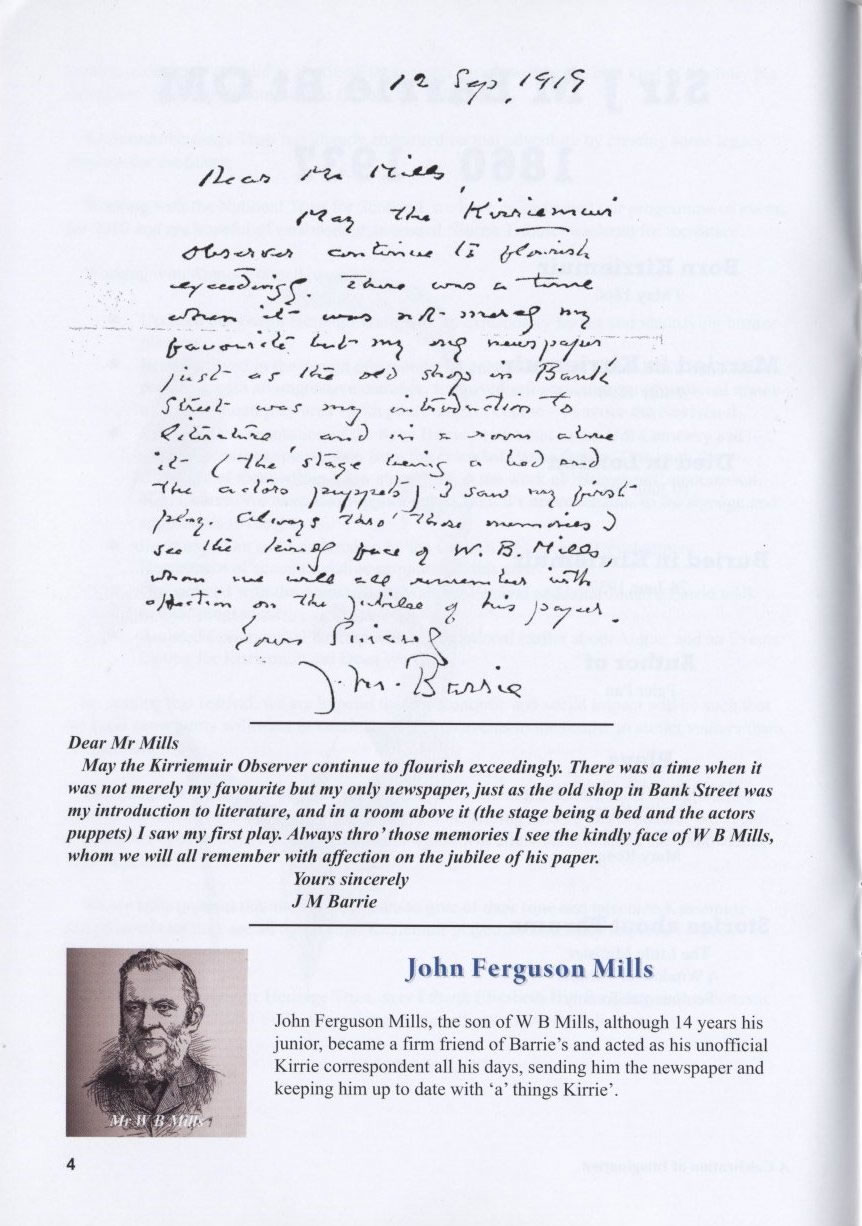 12 Sep. 1919
Dear Mr Mills,
May the 'Kirriemuir
Observer continue to flourish
exceedingly. There was a time
when it was not merely my
favourite but my only newspaper
just as the old shop in Bank
Street was my introduction to
literature, and in a room above
it (the stage being a bed and
the actors puppets) I saw my first
play. Always thro' those memories I
see the kindly face of W. B. Mills,
whom we will all remember with
affection on the jubilee of his paper.
Yours sincerely
J. M. Barrie
Dear Mr Mills
May the Kirriemuir Observer continue to flourish exceedingly. There was a time when it
was not merely my favourite but my only newspaper, just as the old shop in Bank Street was
my introduction to literature, and in a room above it (the stage being a bed and the actors
puppets) I saw my first play. Always thro' those memories I see the kindly face of W B Mills,
whom we will all remember with affection on the jubilee of his paper.
Yours sincerely
J M Barrie
John Ferguson Mills
John Ferguson Mills, the son of W B Mills, although 14 years his
junior, became a firm friend of Barrie's and acted as his unofficial
Kirrie correspondent all his days, sending him the newspaper and
keeping him up to date with 'a' things Kirrie'.
Mr W B Mills
4